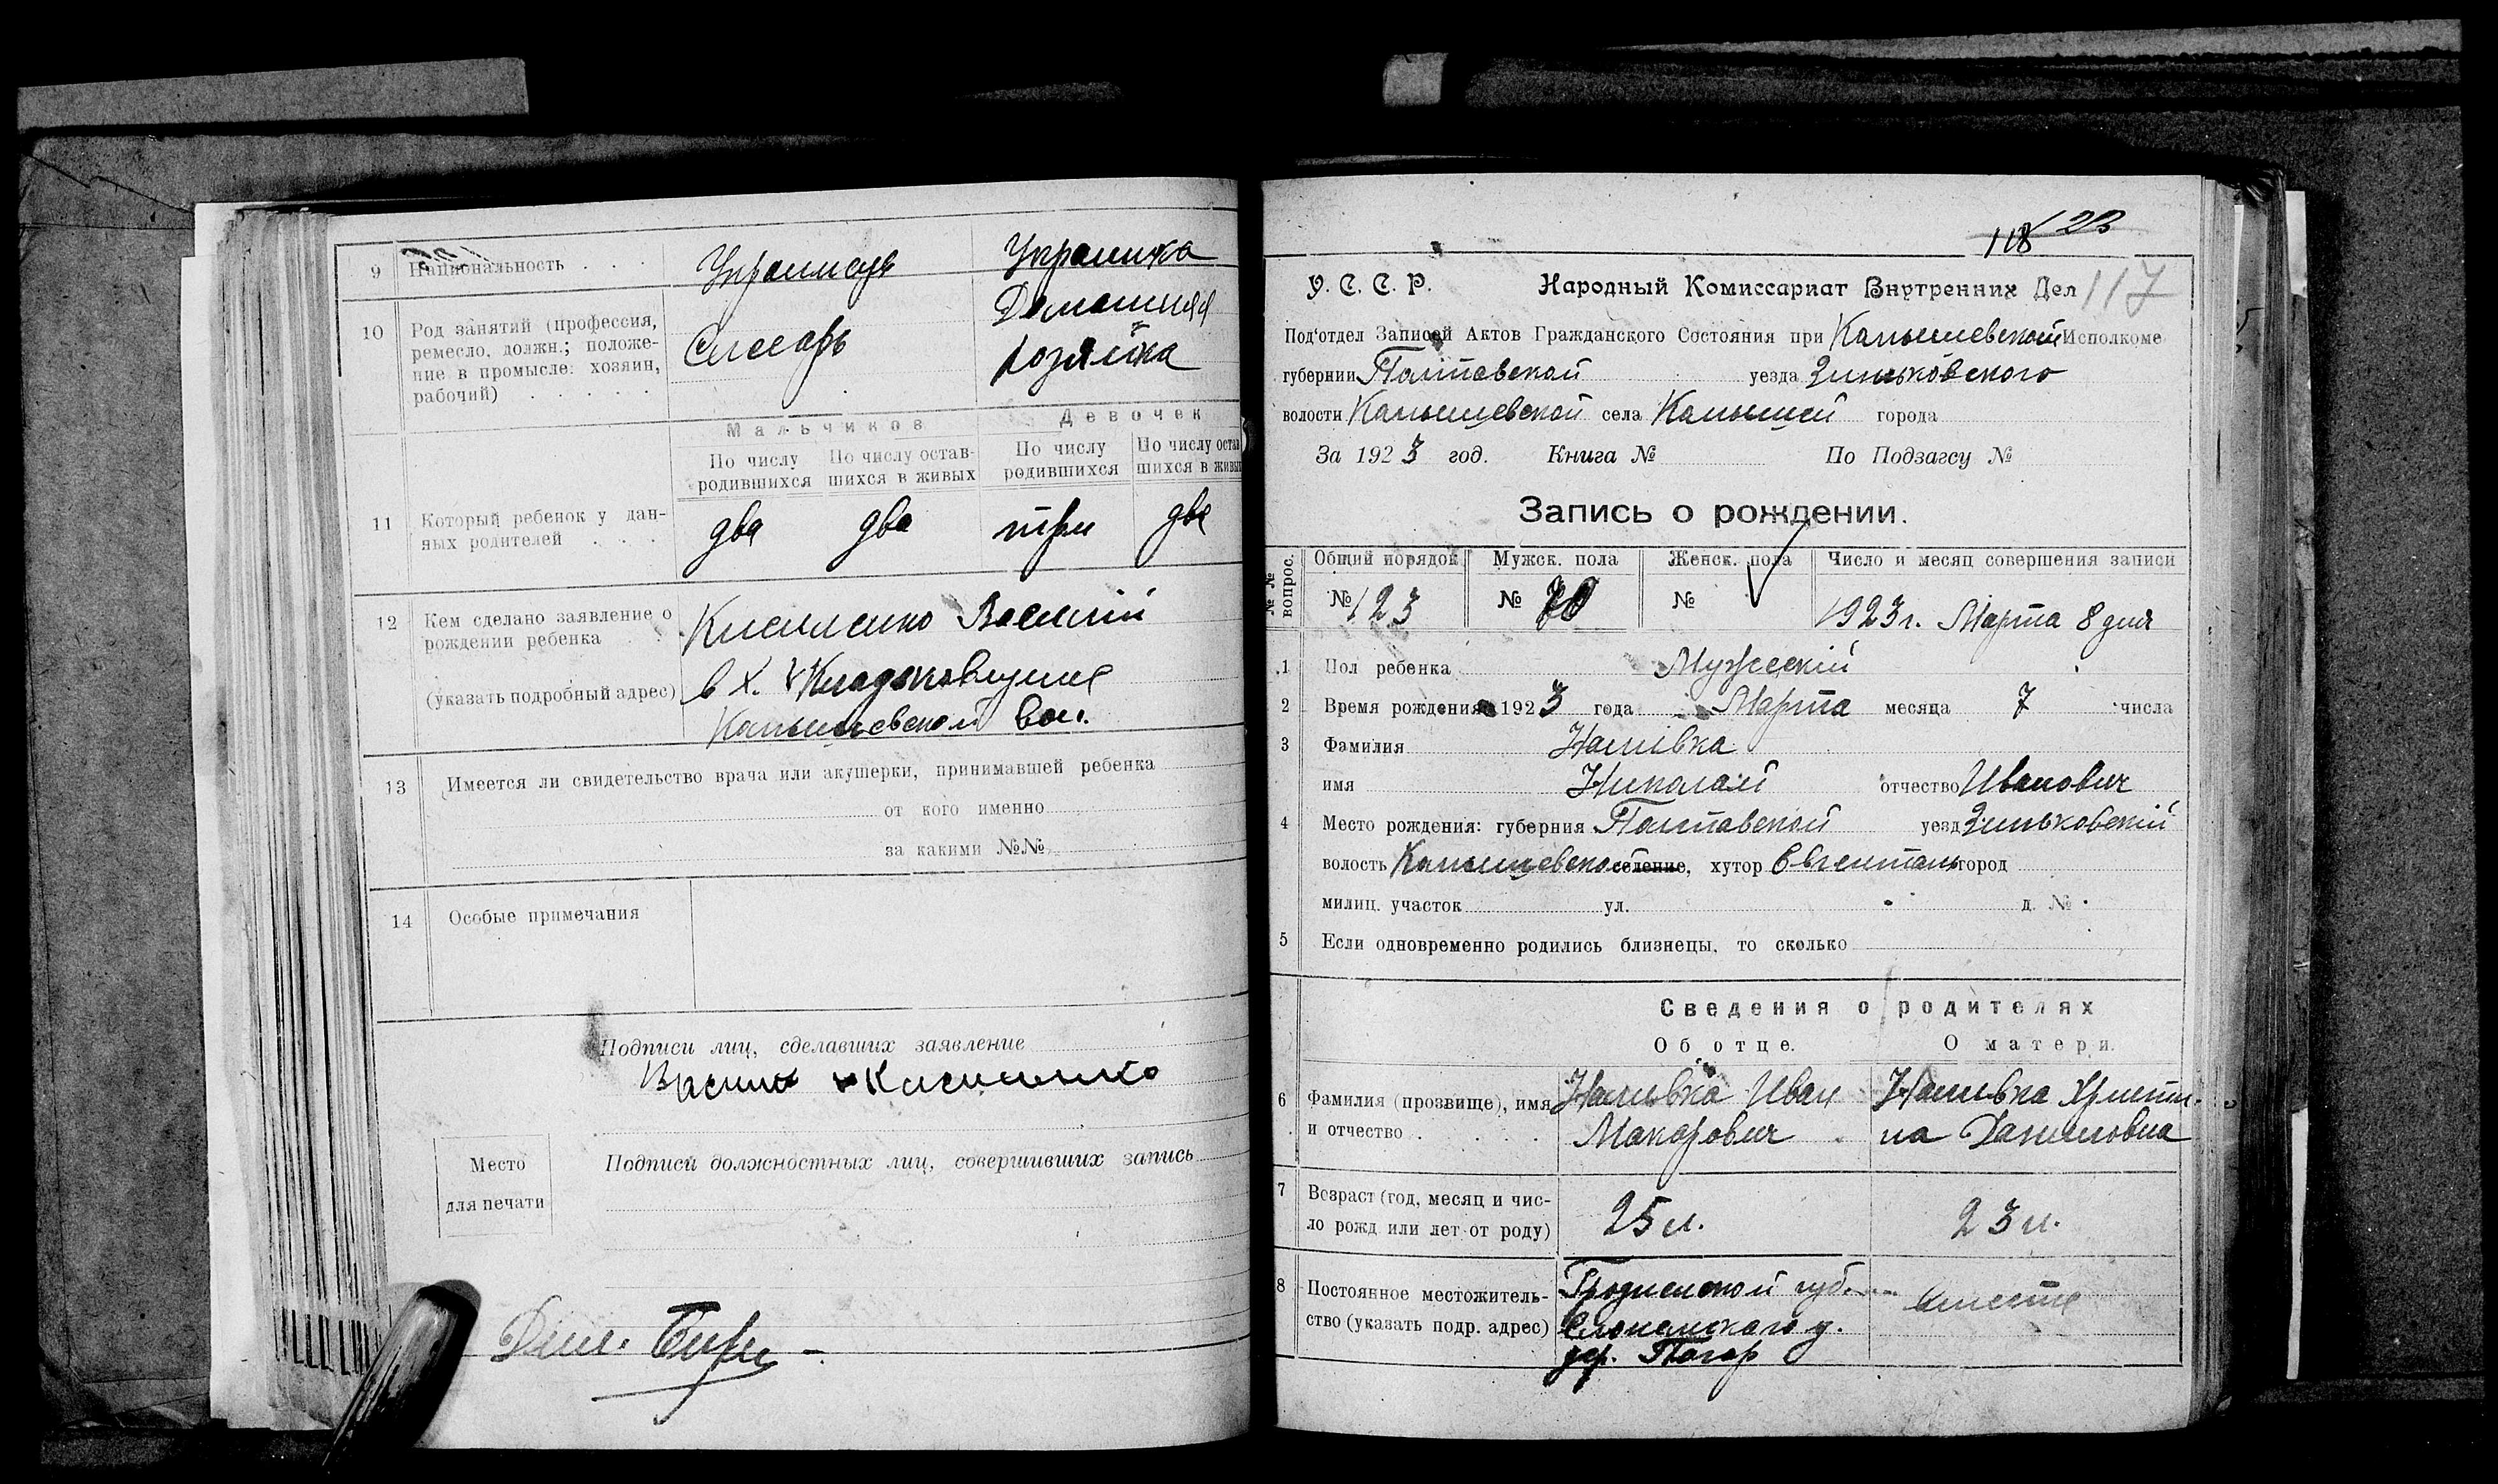 9 Национальность . . . Украинець Украинка
10 Род занятий (профессия, ремесло, должн.; положе-
ние в промысле: хозяин,
рабочий) . . . . . Слесарь Домашняя
хозяйка
Мальчиков Девочек
По числу родившихся По числу остав-
шихся в живых По числу родившихся По числу остав
шихся в живы
11 Который ребенок у дан-
ных родителей . . . два два три две
12 Кем сделано заявление о
рождении ребенка
(указать подробный адрес)
Василий
в х.
Капышевской вол.
13 Имеется ли свидетельство врача или акушерки, принимавшей ребенка
от кого именно
за какими №№
14 Особые примечания
Подписи лиц, сделавших заявление
Место
для печати
Подписи должностных лиц, совершивших запись
118
117
У. С. С. Р. Народный Комиссариат Внутренних Дел
Под'отдел Записей Актов Гражданского Состояния при Капышевском Исполкоме
губернии Полтавской уезда Зиньковского
волости Капышевской села Капышей города
За 1923 год. Книга № По Подзагсу №
Запись о рождении.
№№ вопрос. Общий порядок Мужск. пола Женск. пола Число и месяц совершения записи
№ 123 № 70 № 1923 г. Марта 8 дня
1 Пол ребенка Мужеский
2 Время рождения 1923 года Марта месяца 7 числа
3 Фамилия Наливка
имя Николай отчество Иванович
4 Место рождения: губерния Полтавской уезд Зиньковский
волость селение, хутор город
милиц. участок ул. д. №
5 Если одновременно родились близнецы, то сколько
Сведения о родителях
Об отце. О матери.
6 Фамилия (прозвище), имя Наливка Иван Наливка Христи-
и отчество . . . . Макарович на Даниловна
7 Возраст (год, месяц и чис-
ло рожд или лет от роду) 25 л. 23 л.
8 Постоянное местожитель-
ство (указать подр. адрес)
Гродненской губ.
Слонимского у.
дер. Погор
вместе